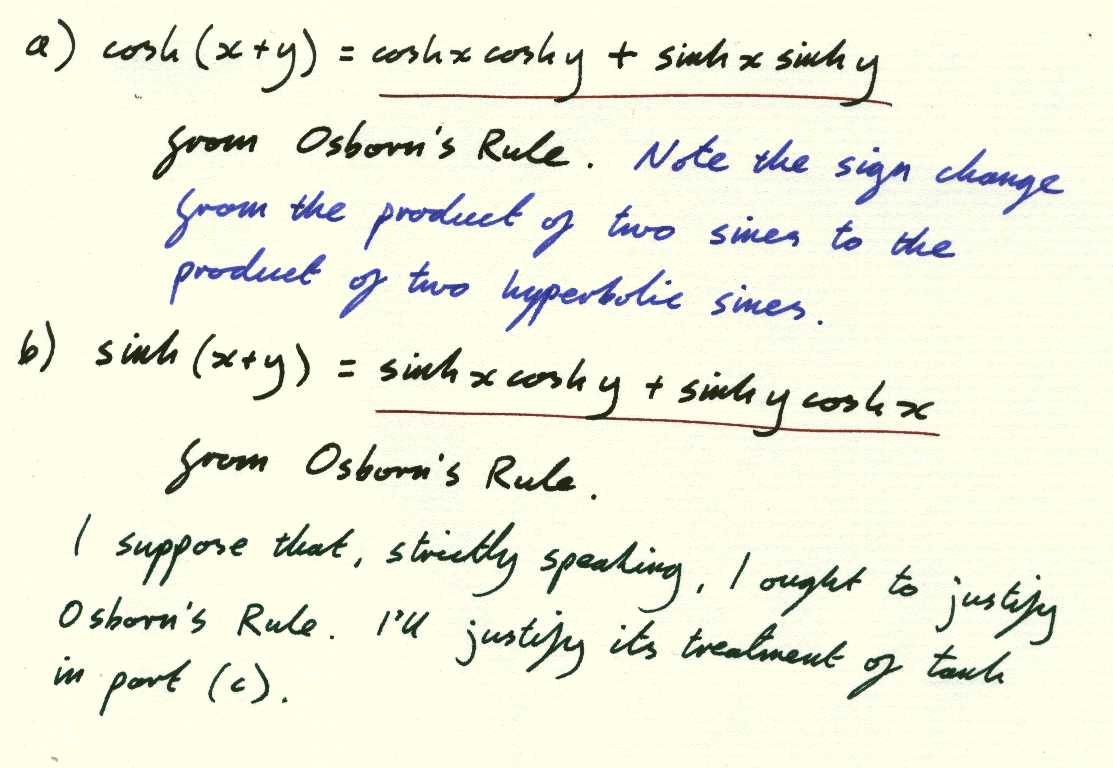 a) cosh (x+y) = cosh x cosh y + sinh x sinh y
from Osborn's Rule. Note the sign change
from the product of two sines to the
product of two hyperbolic sines.
b) sinh (x+y) = sinh x cosh y + sinh y cosh x
from Osborn's Rule.
I suppose that, strictly speaking, I ought to justify
Osborn's Rule. I'll justify its treatment of tanh
in part (c).